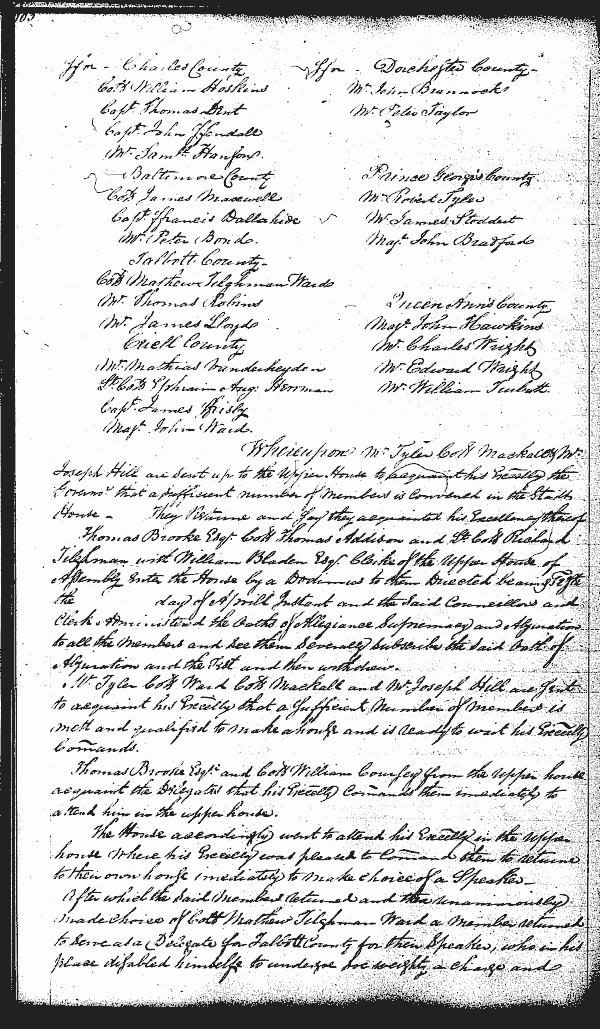 ffor - Charles County
Coll William Hoskins
Capt Thomas Dent
Capt John ffendall
Mr Samll Hanson.
Baltimore County
Coll James Maxwell
Capt ffrancis Dallahide
Mr Peter Bond.
Talbott County
Coll Mathew Tilghman Ward
Mr Thomas Robins
Mr James Lloyd
Cecll County
Mr Mathias Vanderheyden
Lt Coll Ephraim Aug: Herrman
Capt James ffrisby
Majr John Ward.
ffor - Dorchester County -
Mr John Brannock
Mr Peter Taylor
Prince Georgs County
Mr Robert Tyler
Mr James Stoddert
Majr John Bradford
Queen Anns County
Majr John Hawkins
Mr Charles Wright
Mr Edward Wright
Mr William Turbutt
Whereupon Mr Tyler Coll Mackall & Mr
Joseph Hill are sent up to the Upper House to acquaint his Excelly the
Governr that a sufficient number of Members is convened in the
House - They Returne and say they acquainted his Excellency thereof
Thomas Brooke Esqr Coll Thomas Addison and Lt Coll Richard
Tilghman with William Bladen Esqr Clerk of the Upper House of
Assembly Enter the House by a Dedimus to them Directed bearing Teste
the day of Aprill Instant and the Said Councillors and
Clerk Administred the Oaths of Allegiance Supremacy and Abjuration
to all the Members and See them Severally Subscribe the Said Oath of
Abjuration and the Test and then withdrew.
Mr Tyler Coll Ward Coll Mackall and Mr Joseph Hill are Sent
to acquaint his Excelly that a Sufficient Number of Members is
mett and qualified to make a house and is ready to wait his Excelly
Comands.
Thomas Brooke Esqr and Coll William Coursey from the Upper house
acquaint the Delegates that his Excelly Comands them imediately to
attend him in the upper house.
The House accordingly went to attend his Excelly in the upper
house where his Excelly was pleased to Comand them to returne
to their own house imediately to make choice of a Speaker -
After which the Said Members returned and then unanimously
made choice of Coll Mathew Tilghman Ward a Member returned
to Serve as a Delegate for Talbott County for their Speaker, who in his
place disabled himselfe to undergoe soe weighty a Charge and